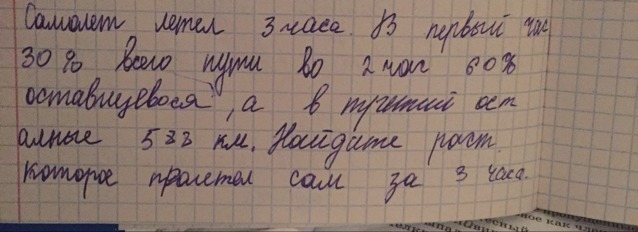 Самолет летел 3 часа. В первый час
30% всего пути во 2 час 60%
оставщевося, а в третий ост
алные 533 км. Найдите раст.
которое пролетел сам за 3 часа.